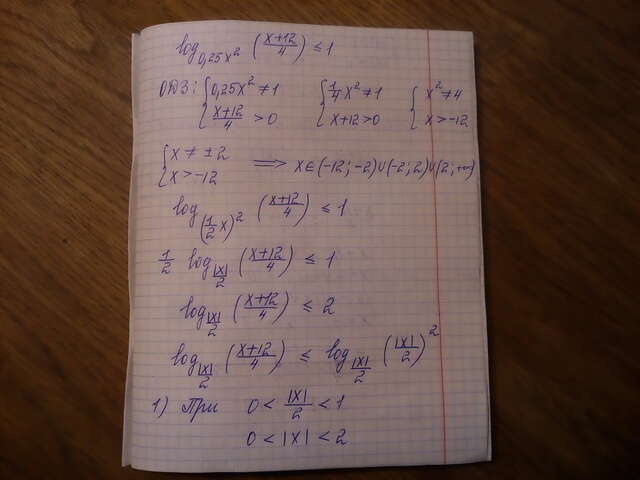 log₀,₂₅ₓ² ((x+12)/4) ≤ 1
ОДЗ: { 0,25x² ≠ 1 { 1/4 x² ≠ 1 { x² ≠ 4
(x+12)/4 > 0 x+12 > 0 x > -12
{ x ≠ ±2
x > -12 ⟹ x ∈ (-12; -2) ∪ (-2; 2) ∪ (2; +∞)
log_(1/2 x)² ((x+12)/4) ≤ 1
1/2 log_|x|/2 ((x+12)/4) ≤ 1
log_|x|/2 ((x+12)/4) ≤ 2
log_|x|/2 ((x+12)/4) ≤ log_|x|/2 (|x|/2)²
1) При 0 < |x|/2 < 1
0 < |x| < 2